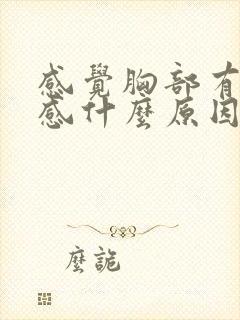 感覺胸部有
感什麼原因
麼詭